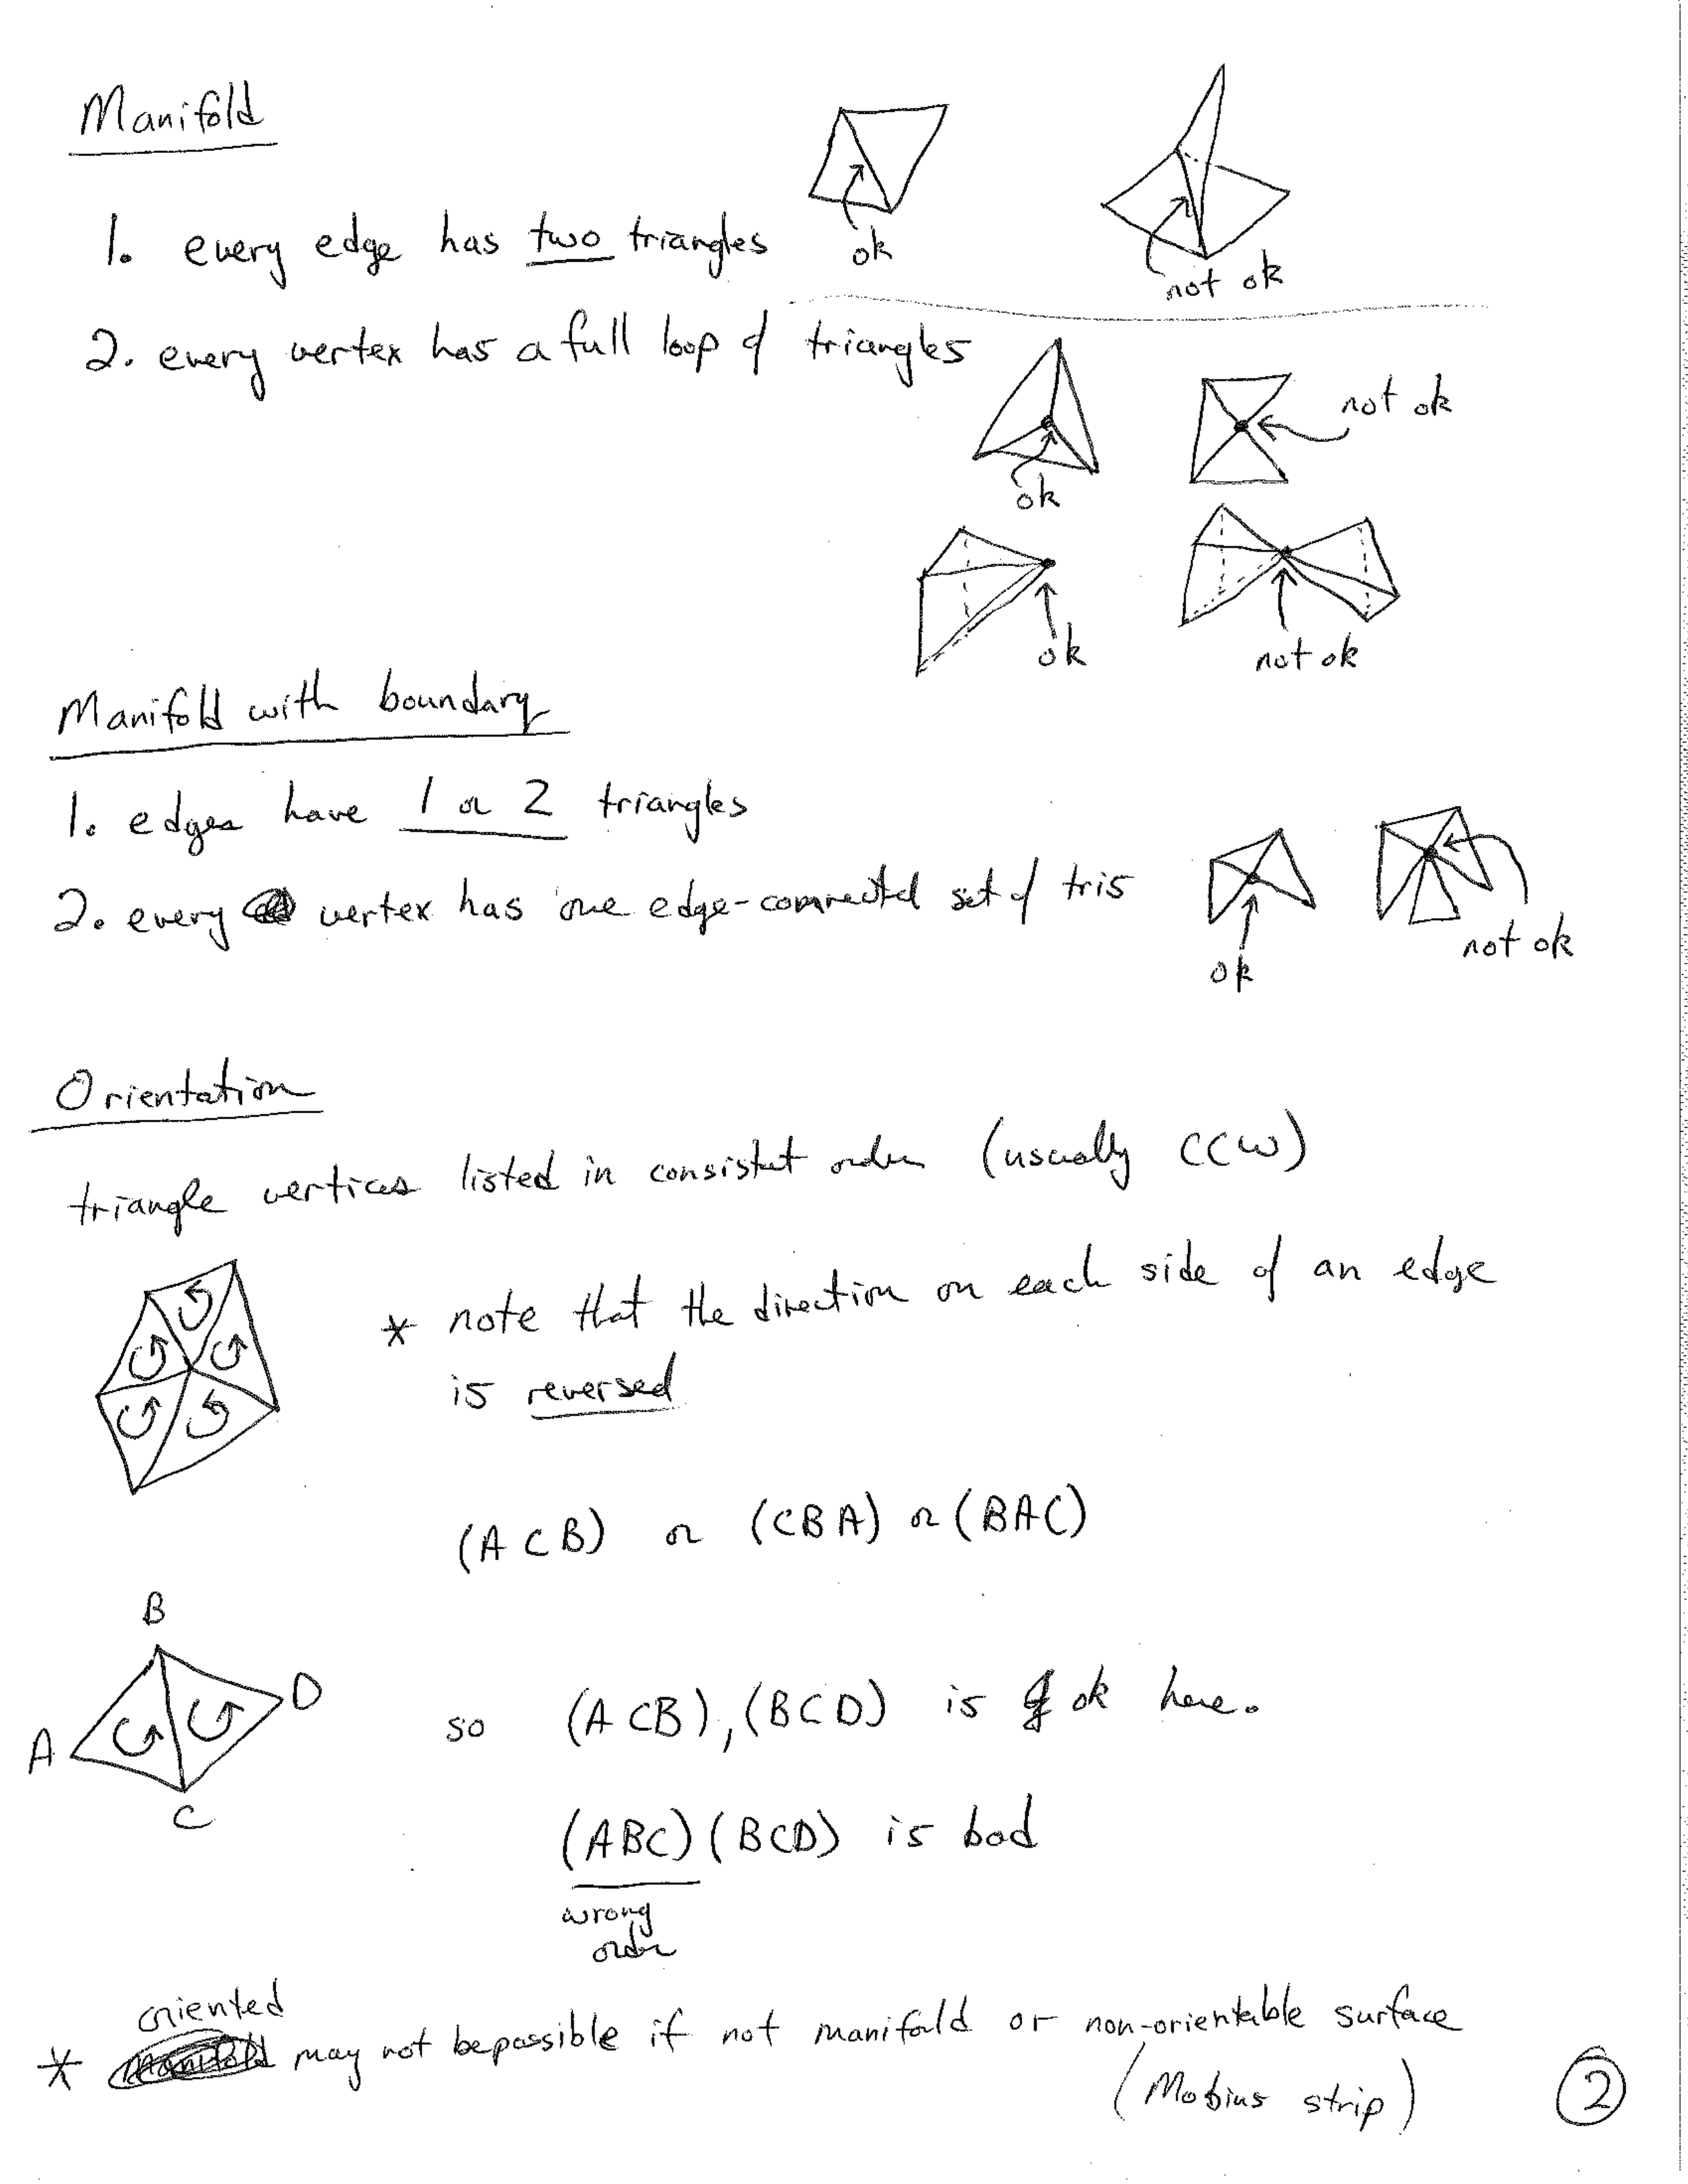 Manifold
1. every edge has two triangles
ok
not ok
2. every vertex has a full loop of triangles
ok
not ok
ok
not ok
Manifold with boundary
1. edges have 1 or 2 triangles
2. every vertex has one edge-connected set of tris
ok
not ok
Orientation
triangle vertices listed in consistent order (usually CCW)
* note that the direction on each side of an edge
is reversed
(A C B) or (C B A) or (B A C)
B
A
D
C
so (A C B), (B C D) is ok here.
(A B C) (B C D) is bad
wrong
order
oriented
* may not be possible if not manifold or non-orientable surface
(Mobius strip)
2